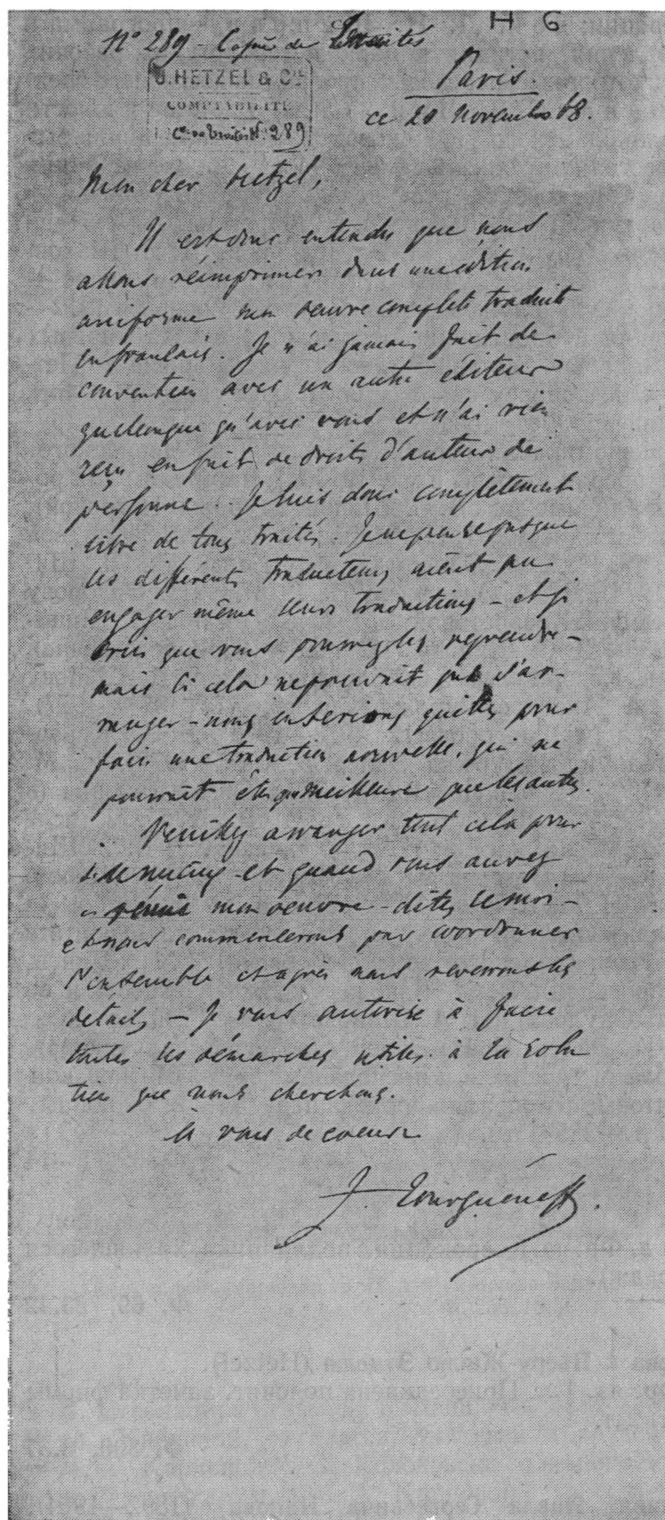 H G
N° 289 - Copie de Traités
J. HETZEL & Cie
COMPTABILITÉ
Cie de Traités N° 289
Paris.
ce 20 novembre 68.
Mon cher Hetzel,
Il est donc entendu que nous
allons réimprimer dans une édition
uniforme mon oeuvre complète traduite
en français. Je n'ai jamais fait de
convention avec un autre éditeur
quelconque qu'avec vous et n'ai rien
reçu en fait de droits d'auteur de
personne. Je suis donc complètement
libre de tous traités. Je ne pense pas que
les différents traducteurs aient pu
engager même leurs traductions - et je
crois que vous pourrez les reprendre -
mais si cela ne pouvait pas s'ar-
ranger - nous en serions quittes pour
faire une traduction nouvelle, qui ne
pourrait être que meilleure que les autres.
Veuillez arranger tout cela pour
le mieux - et quand vous aurez
réuni mon oeuvre - dites le moi -
et nous commencerons par coordonner
l'ensemble et après nous reverrons les
détails - Je vous autorise à faire
toutes les démarches utiles à la solu
tion que nous cherchons.
à vous de coeur
J. Tourguéneff.